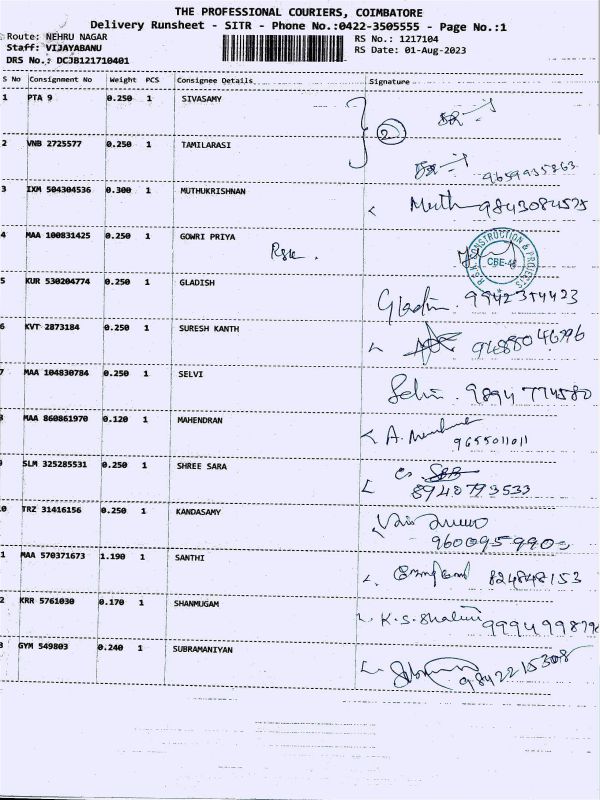 THE PROFESSIONAL COURIERS, COIMBATORE
Delivery Runsheet - SITR - Phone No.:0422-3505555 - Page No.:1
Route: NEHRU NAGAR RS No.: 1217104
Staff: VIJAYABANU RS Date: 01-Aug-2023
DRS No.: DCJB121710401
S No Consignment No Weight PCS Consignee Details Signature
1 PTA 9 0.250 1 SIVASAMY
2
2 VNB 2725577 0.250 1 TAMILARASI
9659935863
3 IXM 504304536 0.300 1 MUTHUKRISHNAN Muth 9843084525
4 MAA 100831425 0.250 1 GOWRI PRIYA
R.S.K CONSTRUCTION & PROJECTS CBE-48
5 KUR 530204774 0.250 1 GLADISH Gladin. 9942314423
6 KVT 2873184 0.250 1 SURESH KANTH
7 MAA 104830784 0.250 1 SELVI Selvi. 9894774580
8 MAA 860861970 0.120 1 MAHENDRAN A.
9655011011
9 SLM 325285531 0.250 1 SHREE SARA
8940793533
0 TRZ 31416156 0.250 1 KANDASAMY
1 MAA 570371673 1.190 1 SANTHI
2 KRR 5761030 0.170 1 SHANMUGAM K.S. Shalini
3 GYM 549803 0.240 1 SUBRAMANIYAN
9842215308